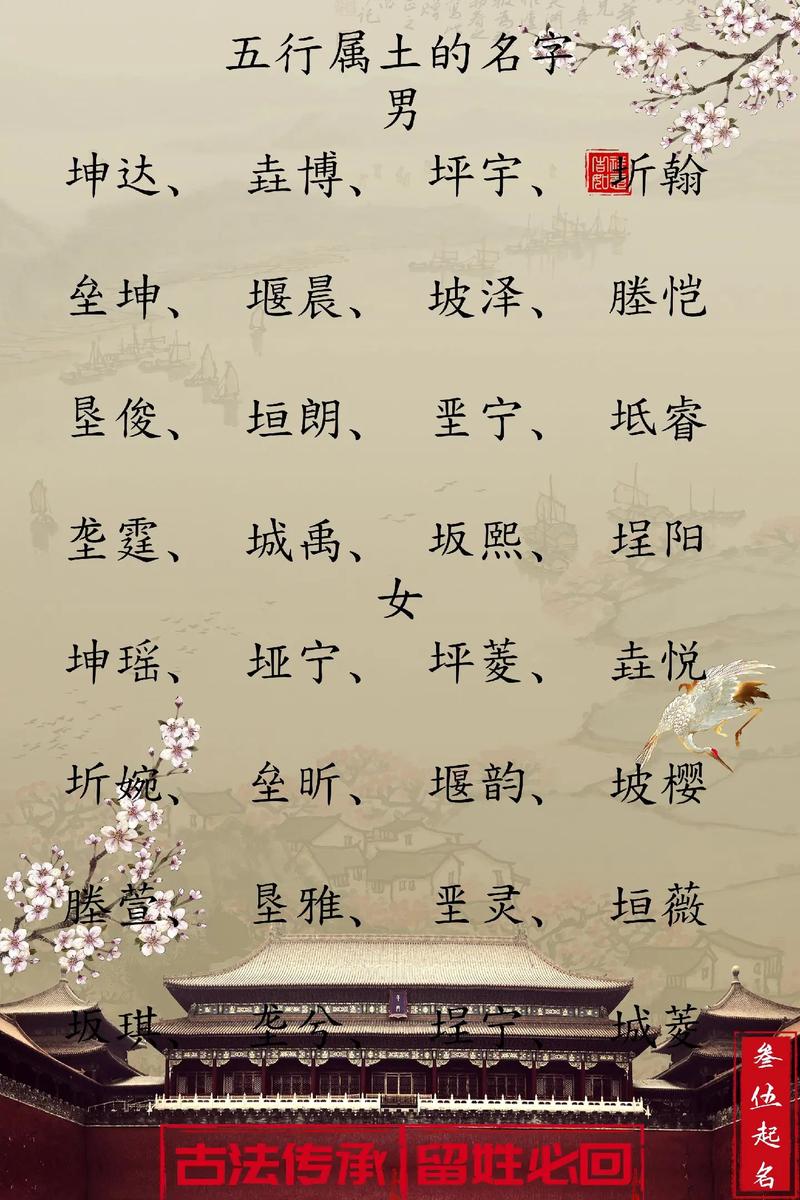 五行属土的名字
男
坤达、 垚博、 坪宇、 圻翰
垒坤、 堰晨、 坡泽、 塍恺
垦俊、 垣朗、 垩宁、 坻睿
垄霆、 城禹、 坂熙、 埕阳
女
坤瑶、 垭宁、 坪菱、 垚悦
圻婉、 垒昕、 堰韵、 坡樱
塍萱、 垦雅、 垩灵、 垣薇
坂琪、 垄兮、 埕宁、 城菱
叁伍起名
古法传承 留姓必回